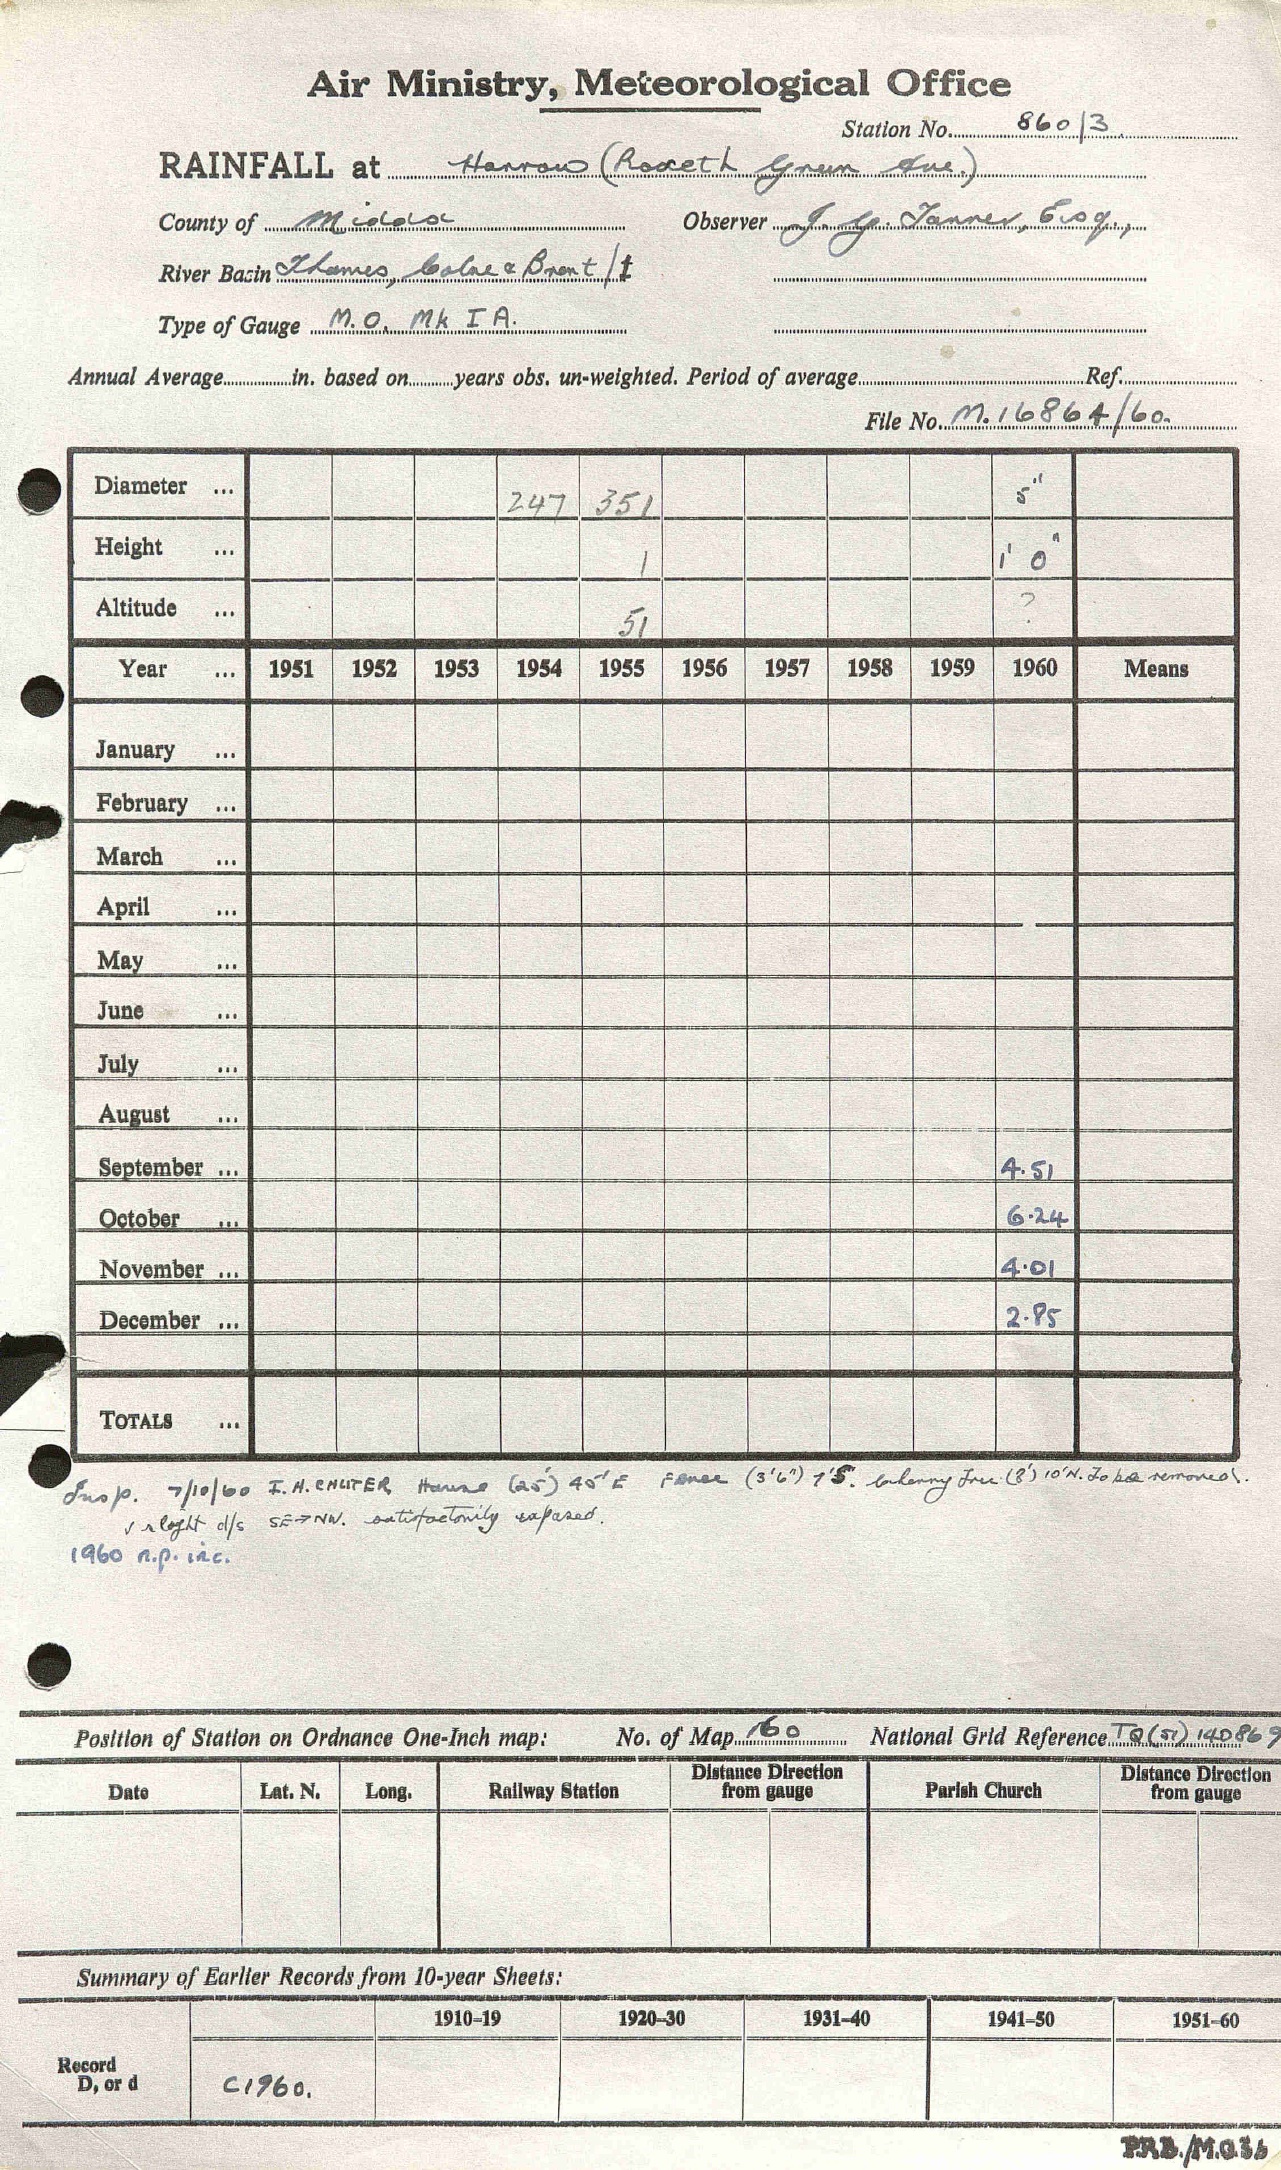 Air Ministry, Meteorological Office
Station No. 860/3
RAINFALL at Harrow (Roxeth Green Ave.)
County of Middx Observer J. G. Tanner, Esq.,
River Basin Thames, Colne & Brent/1
Type of Gauge M.O. Mk I A.
Annual Average in. based on years obs. un-weighted. Period of average Ref.
File No. M.16864/60.
Diameter ... 247 351 5"
Height ... 1 1' 0"
Altitude ... 51 ?
Year ... 1951 1952 1953 1954 1955 1956 1957 1958 1959 1960 Means
January ...
February ...
March ...
April ...
May ...
June ...
July ...
August ...
September ... 4.51
October ... 6.24
November ... 4.01
December ... 2.85
TOTALS ...
Insp. 7/10/60 I. H. CHUTER House (25') 45' E Fence (3'6") 7'S. Cherry Tree (8') 10'N. To be removed.
slight d/s SE→NW. satisfactorily exposed.
1960 n.p. inc.
Position of Station on Ordnance One-Inch map: No. of Map 160 National Grid Reference TQ(51) 140869
Date Lat. N. Long. Railway Station Distance Direction from gauge Parish Church Distance Direction from gauge
Summary of Earlier Records from 10-year Sheets:
1910-19 1920-30 1931-40 1941-50 1951-60
Record
D, or d C1960.
PRB./M.O.3b